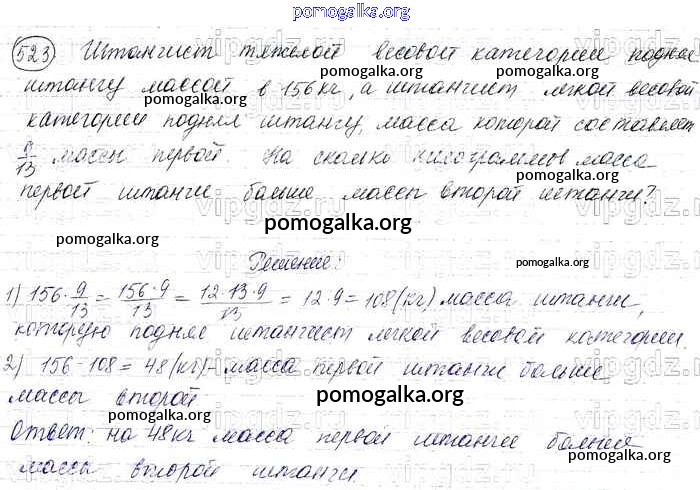 pomogalka.org
523 Штангист тяжелой весовой категории поднял
pomogalka.org pomogalka.org
штангу массой в 156 кг, а штангист легкой весовой
pomogalka.org pomogalka.org
категории поднял штангу, масса которой составляет
9/13 массы первой. На сколько килограммов масса
pomogalka.org
первой штанги больше массы второй штанги?
pomogalka.org
pomogalka.org pomogalka.org
Решение:
1) 156 · 9/13 = 156·9/13 = 12·13·9/13 = 12·9 = 108 (кг) масса штанги,
которую поднял штангист легкой весовой категории.
2) 156 - 108 = 48 (кг) - масса первой штанги больше
pomogalka.org
массы второй
pomogalka.org pomogalka.org
Ответ: на 48 кг масса первой штанги больше
pomogalka.org
массы второй штанги.